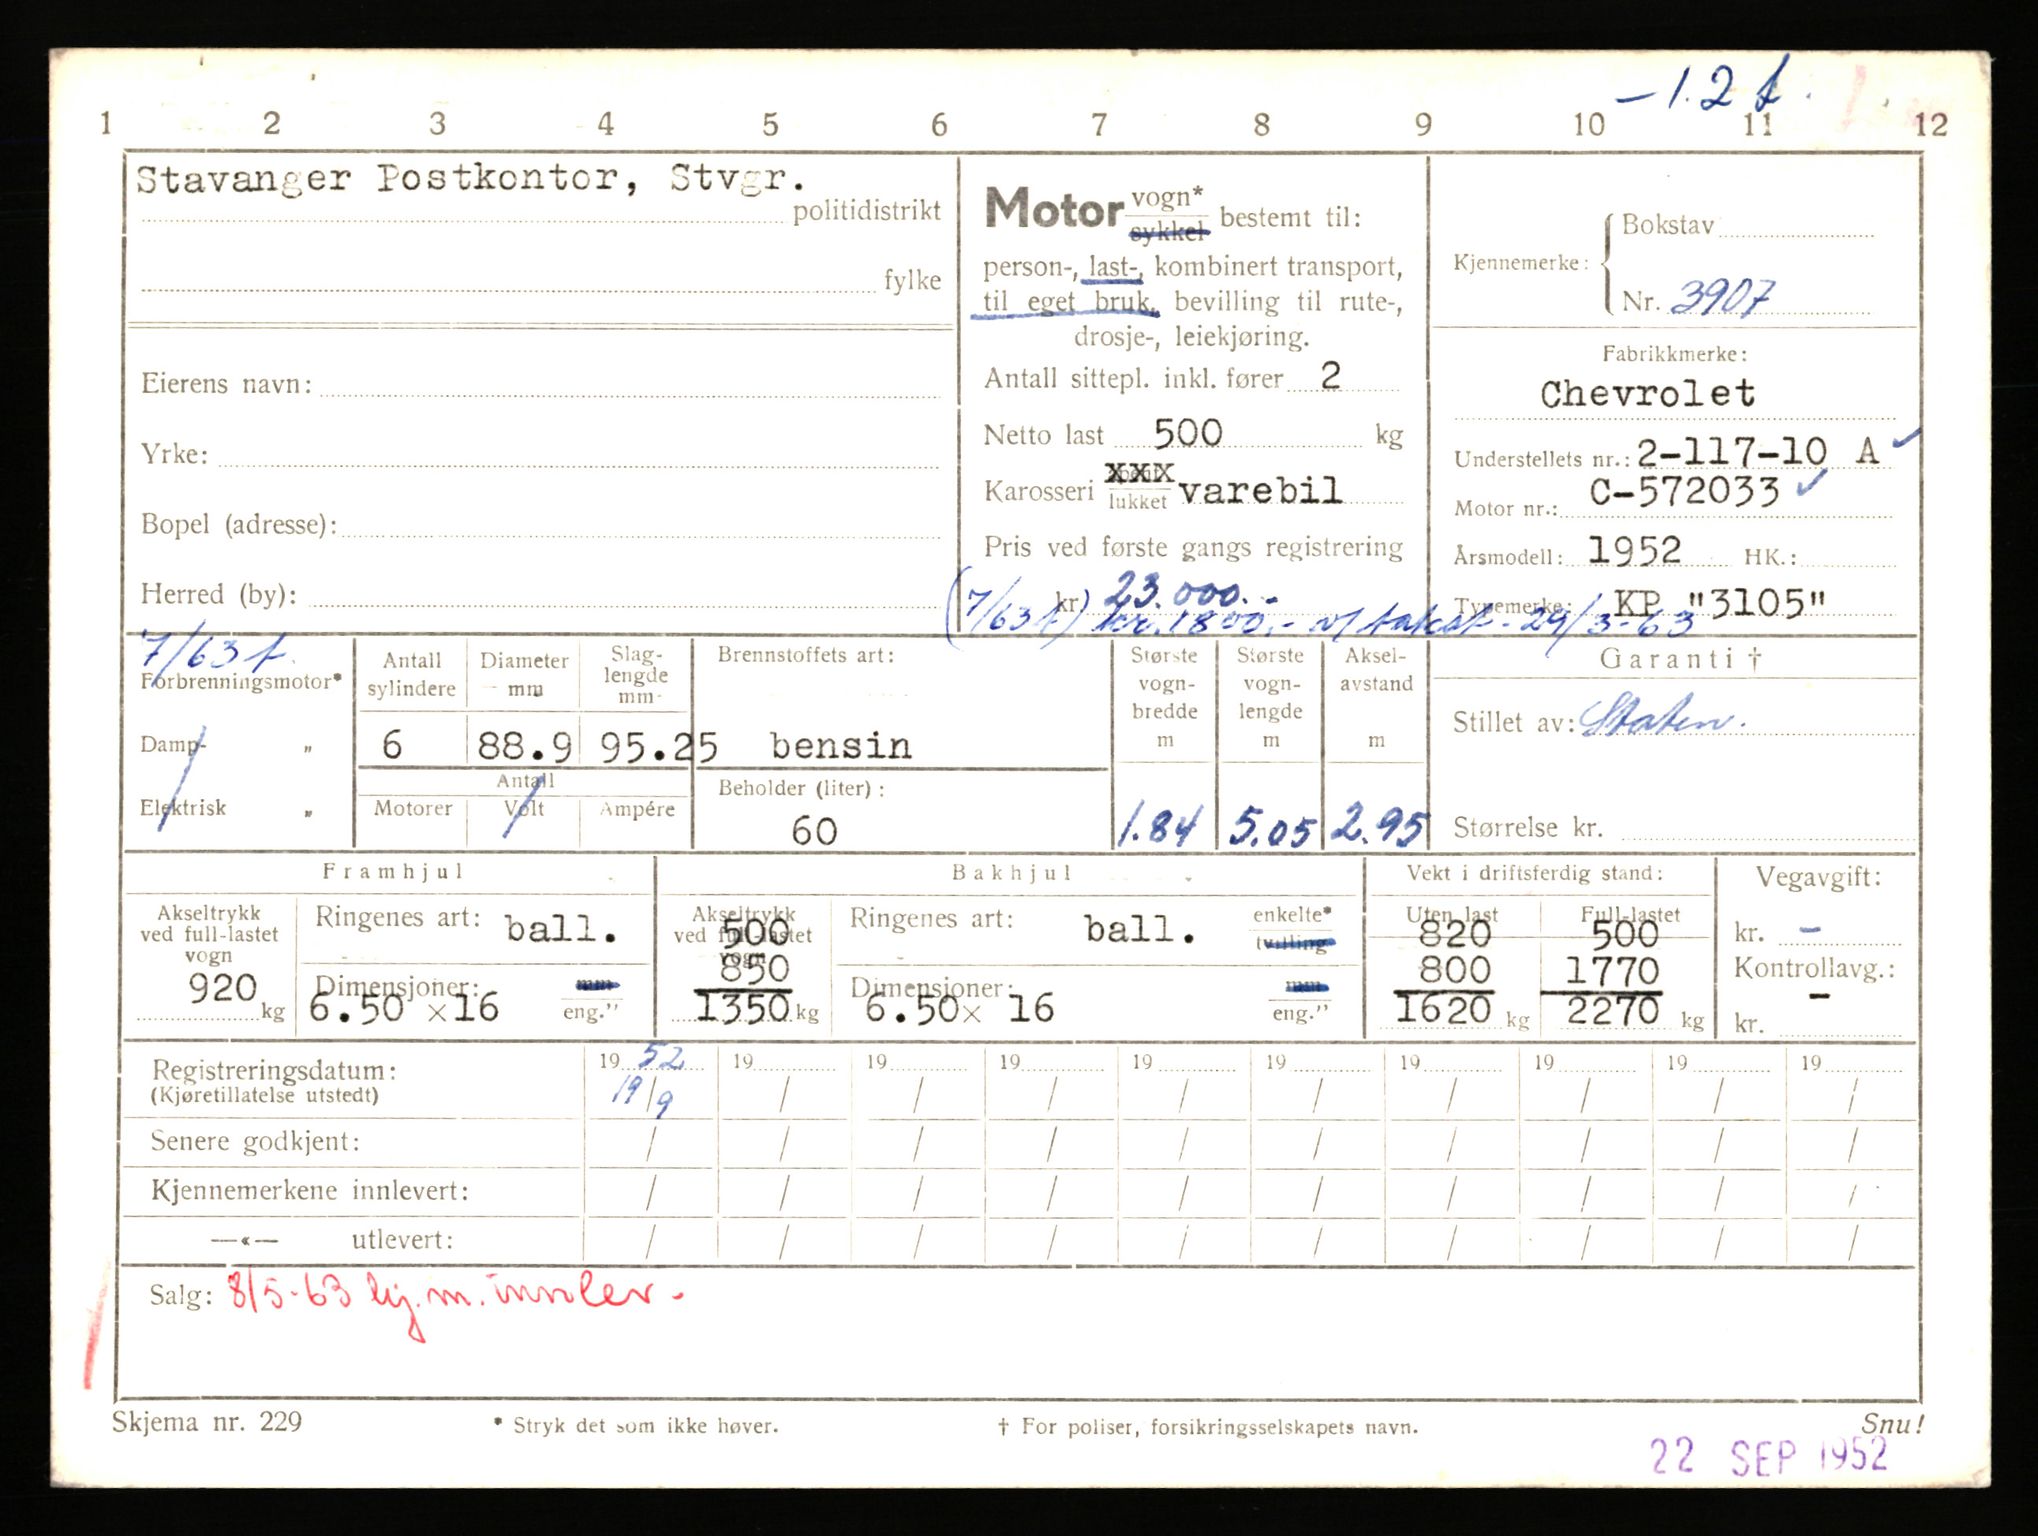 -1.2 t.
1 2 3 4 5 6 7 8 9 10 11 12
Stavanger Postkontor, Stvgr.
politidistrikt
fylke
Eierens navn:
Yrke:
Bopel (adresse):
Herred (by):
Motor vogn* sykkel bestemt til:
person-, last-, kombinert transport,
til eget bruk, bevilling til rute-,
drosje-, leiekjøring.
Antall sittepl. inkl. fører 2
Netto last 500 kg
Karosseri xxx lukket varebil
Pris ved første gangs registrering
kr 23.000.-
(7/63 t) kr. 1800.- v/ takst - 29/3-63
Kjennemerke: Bokstav
Nr. 3907
Fabrikkmerke:
Chevrolet
Understellets nr.: 2-117-10 A
Motor nr.: C-572033
Årsmodell: 1952 HK.:
Typemerke: KP "3105"
7/63 t.
Forbrenningsmotor*
Damp- "
Elektrisk "
Antall sylindere
6
Diameter mm
88.9
Slag-lengde mm
95.25
Antall
Motorer Volt Ampére
Brennstoffets art:
bensin
Beholder (liter):
60
Største vogn-bredde m
1.84
Største vogn-lengde m
5.05
Aksel-avstand m
2.95
Garanti †
Stillet av: Staten.
Størrelse kr.
Framhjul
Akseltrykk
ved full-lastet
vogn
920 kg
Ringenes art: ball.
Dimensjoner: mm
6.50 x 16 eng."
Bakhjul
Akseltrykk
ved full-lastet
vogn
500
850
1350 kg
Ringenes art: ball. enkelte* tvilling
Dimensjoner: mm
6.50 x 16 eng."
Vekt i driftsferdig stand:
Uten last Full-lastet
820 500
800 1770
1620 kg 2270 kg
Vegavgift:
kr. -
Kontrollavg.:
kr. -
Registreringsdatum: 19 52 19 19 19 19 19 19 19 19 19
(Kjøretillatelse utstedt) 19/9 / / / / / / / / /
Senere godkjent: / / / / / / / / / /
Kjennemerkene innlevert: / / / / / / / / / /
—«— utlevert: / / / / / / / / / /
Salg: 8/5-63 kj.m. innlev.
Skjema nr. 229
* Stryk det som ikke høver.
† For poliser, forsikringsselskapets navn.
Snu!
22 SEP 1952